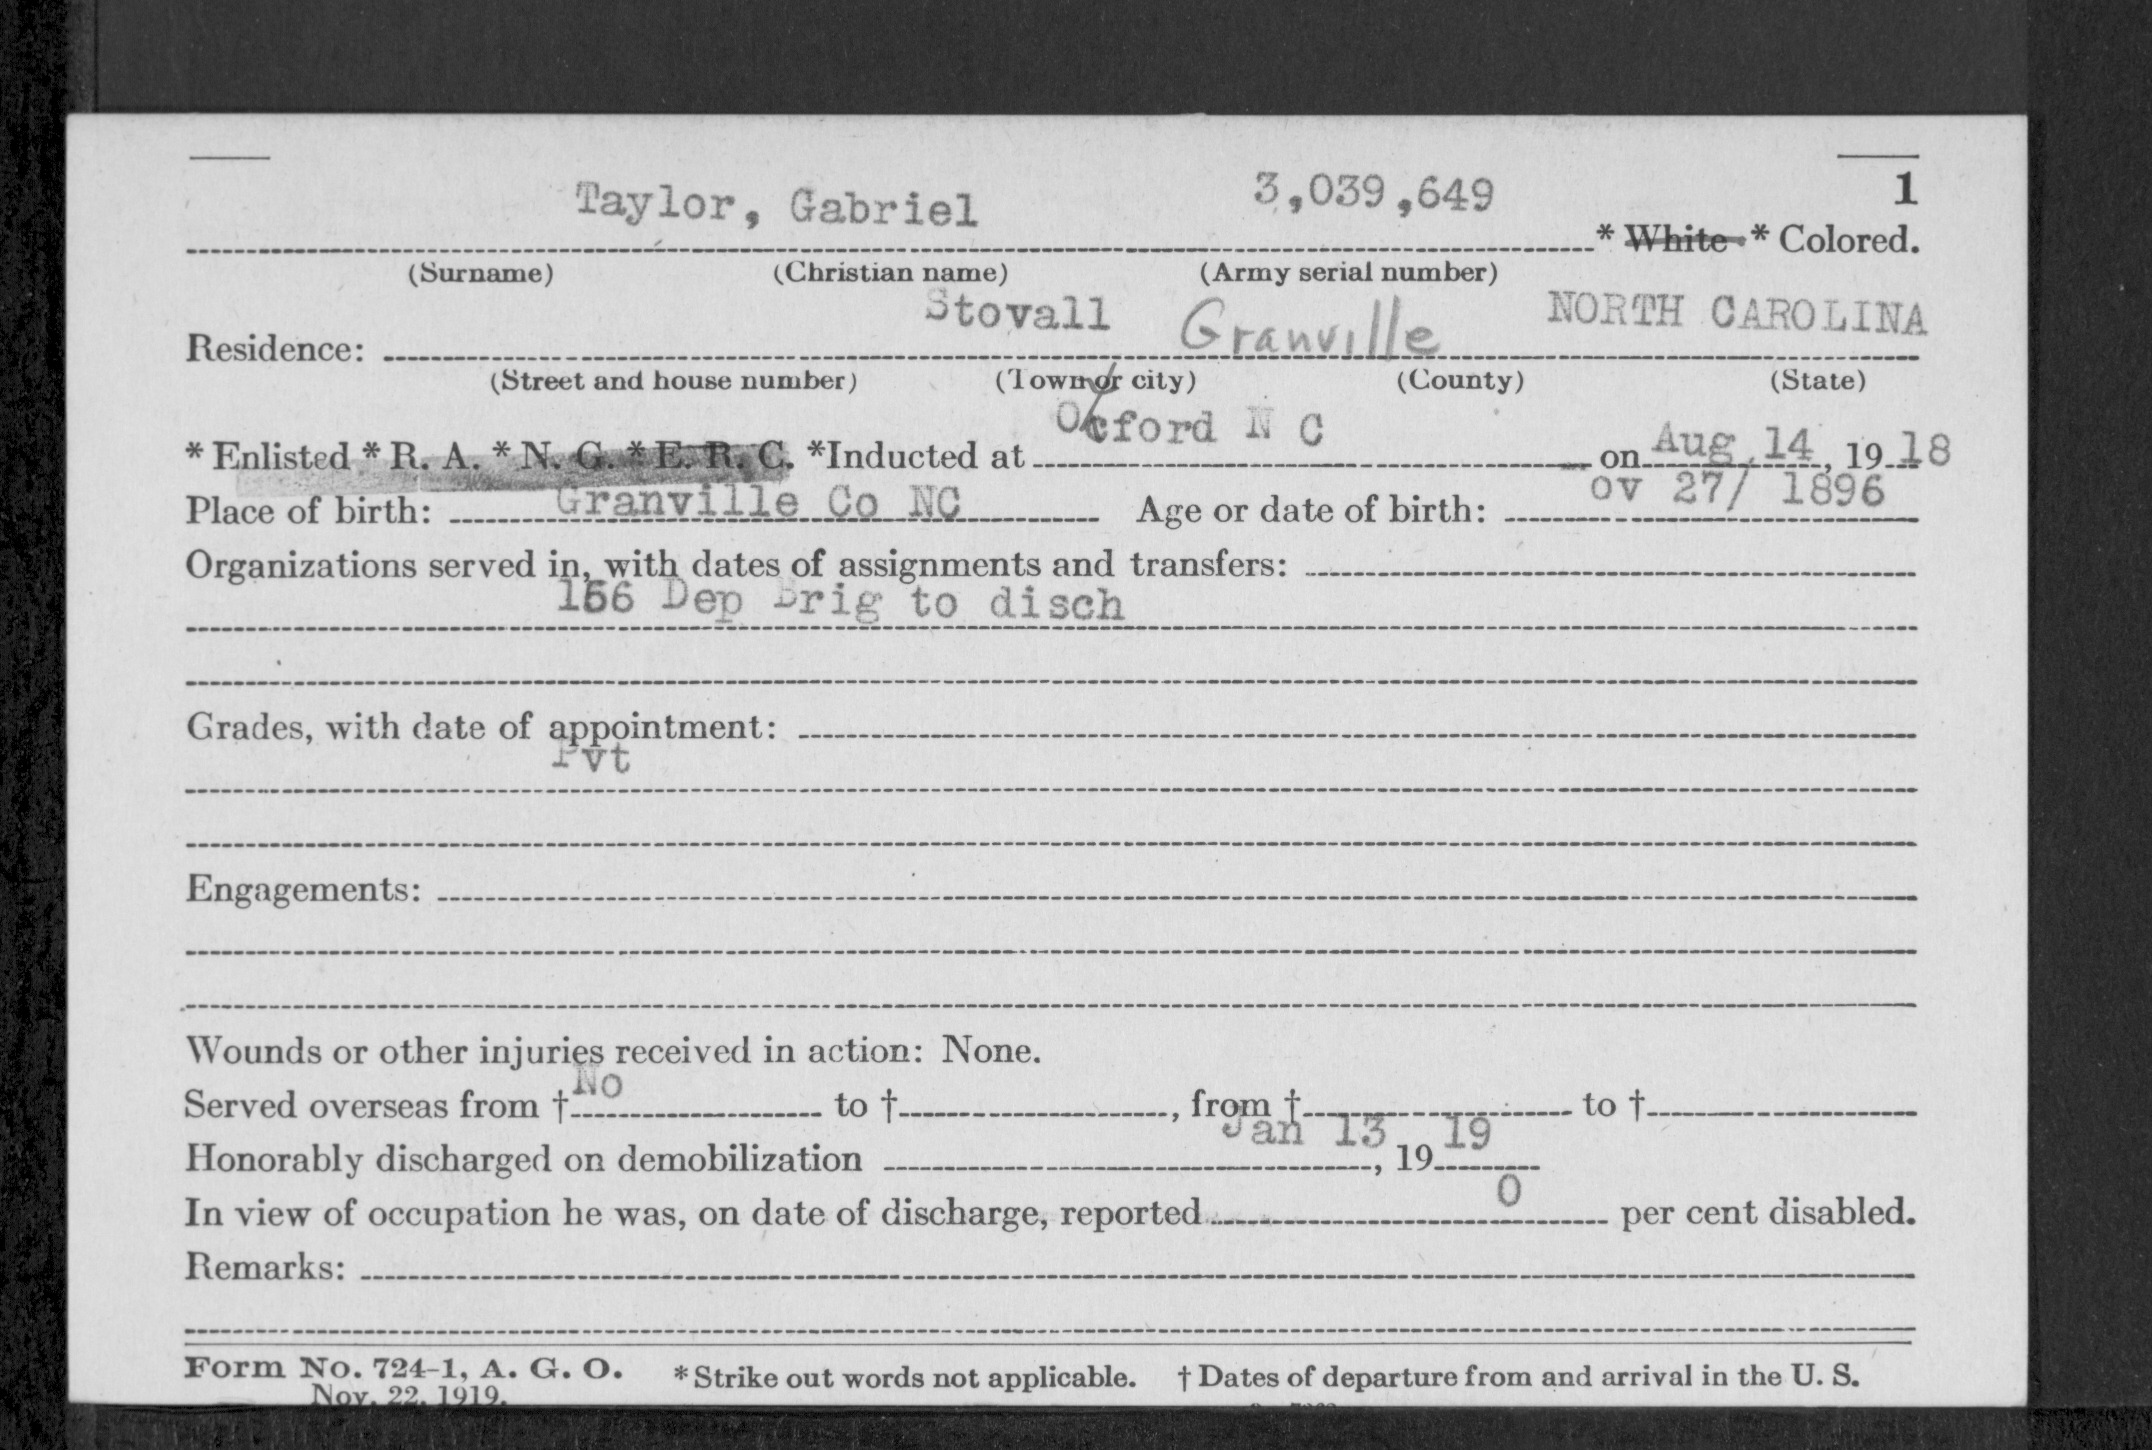 Taylor, Gabriel 3,039,649 1
* White * Colored.
(Surname) (Christian name) (Army serial number)
Stovall Granville NORTH CAROLINA
Residence:
(Street and house number) (Town or city) (County) (State)
Oxford N C
* Enlisted * R. A. * N. G. * E. R. C. *Inducted at on Aug 14, 1918
Place of birth: Granville Co NC Age or date of birth: ov 27/ 1896
Organizations served in, with dates of assignments and transfers:
156 Dep Brig to disch
Grades, with date of appointment:
Pvt
Engagements:
Wounds or other injuries received in action: None.
Served overseas from † No to †, from † to †
Honorably discharged on demobilization Jan 13, 19 19
In view of occupation he was, on date of discharge, reported 0 per cent disabled.
Remarks:
Form No. 724-1, A. G. O. * Strike out words not applicable. † Dates of departure from and arrival in the U. S.
Nov. 22, 1919.